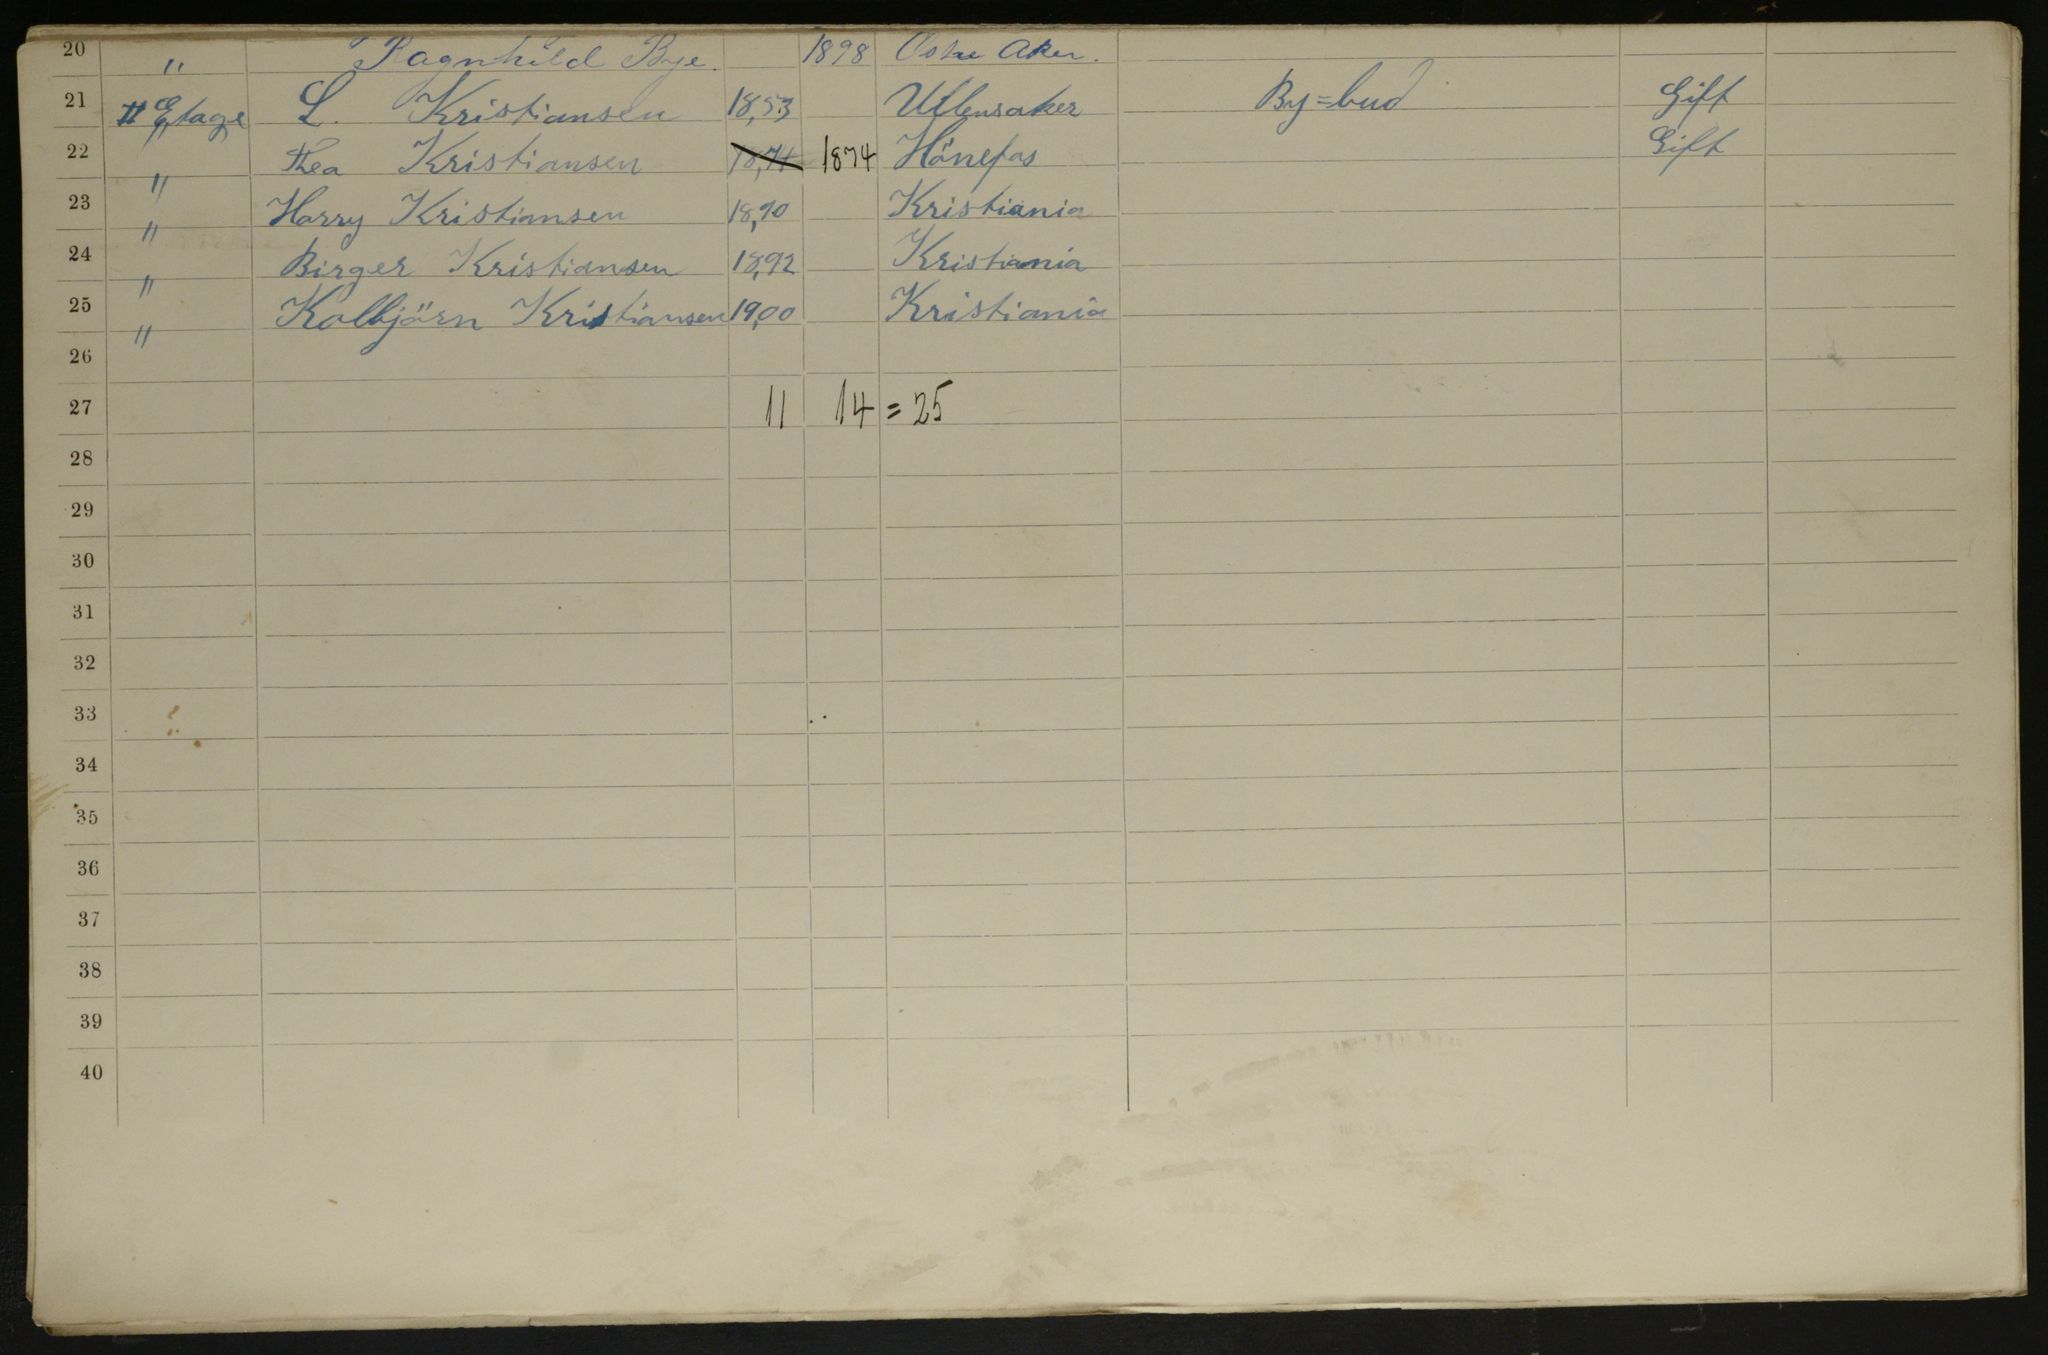 20 " Ragnhild Bye. 1898 Østre Aker.
21 II Etage L. Kristiansen 18,53 Ullensaker By=bud Gift
22 " Thea Kristiansen 18,74 1874 Hönefos Gift
23 " Harry Kristiansen 18,90 Kristiania
24 " Birger Kristiansen 18,92 Kristiania
25 " Kolbjörn Kristiansen 19,00 Kristiania
26
27 11 14 = 25
28
29
30
31
32
33
34
35
36
37
38
39
40